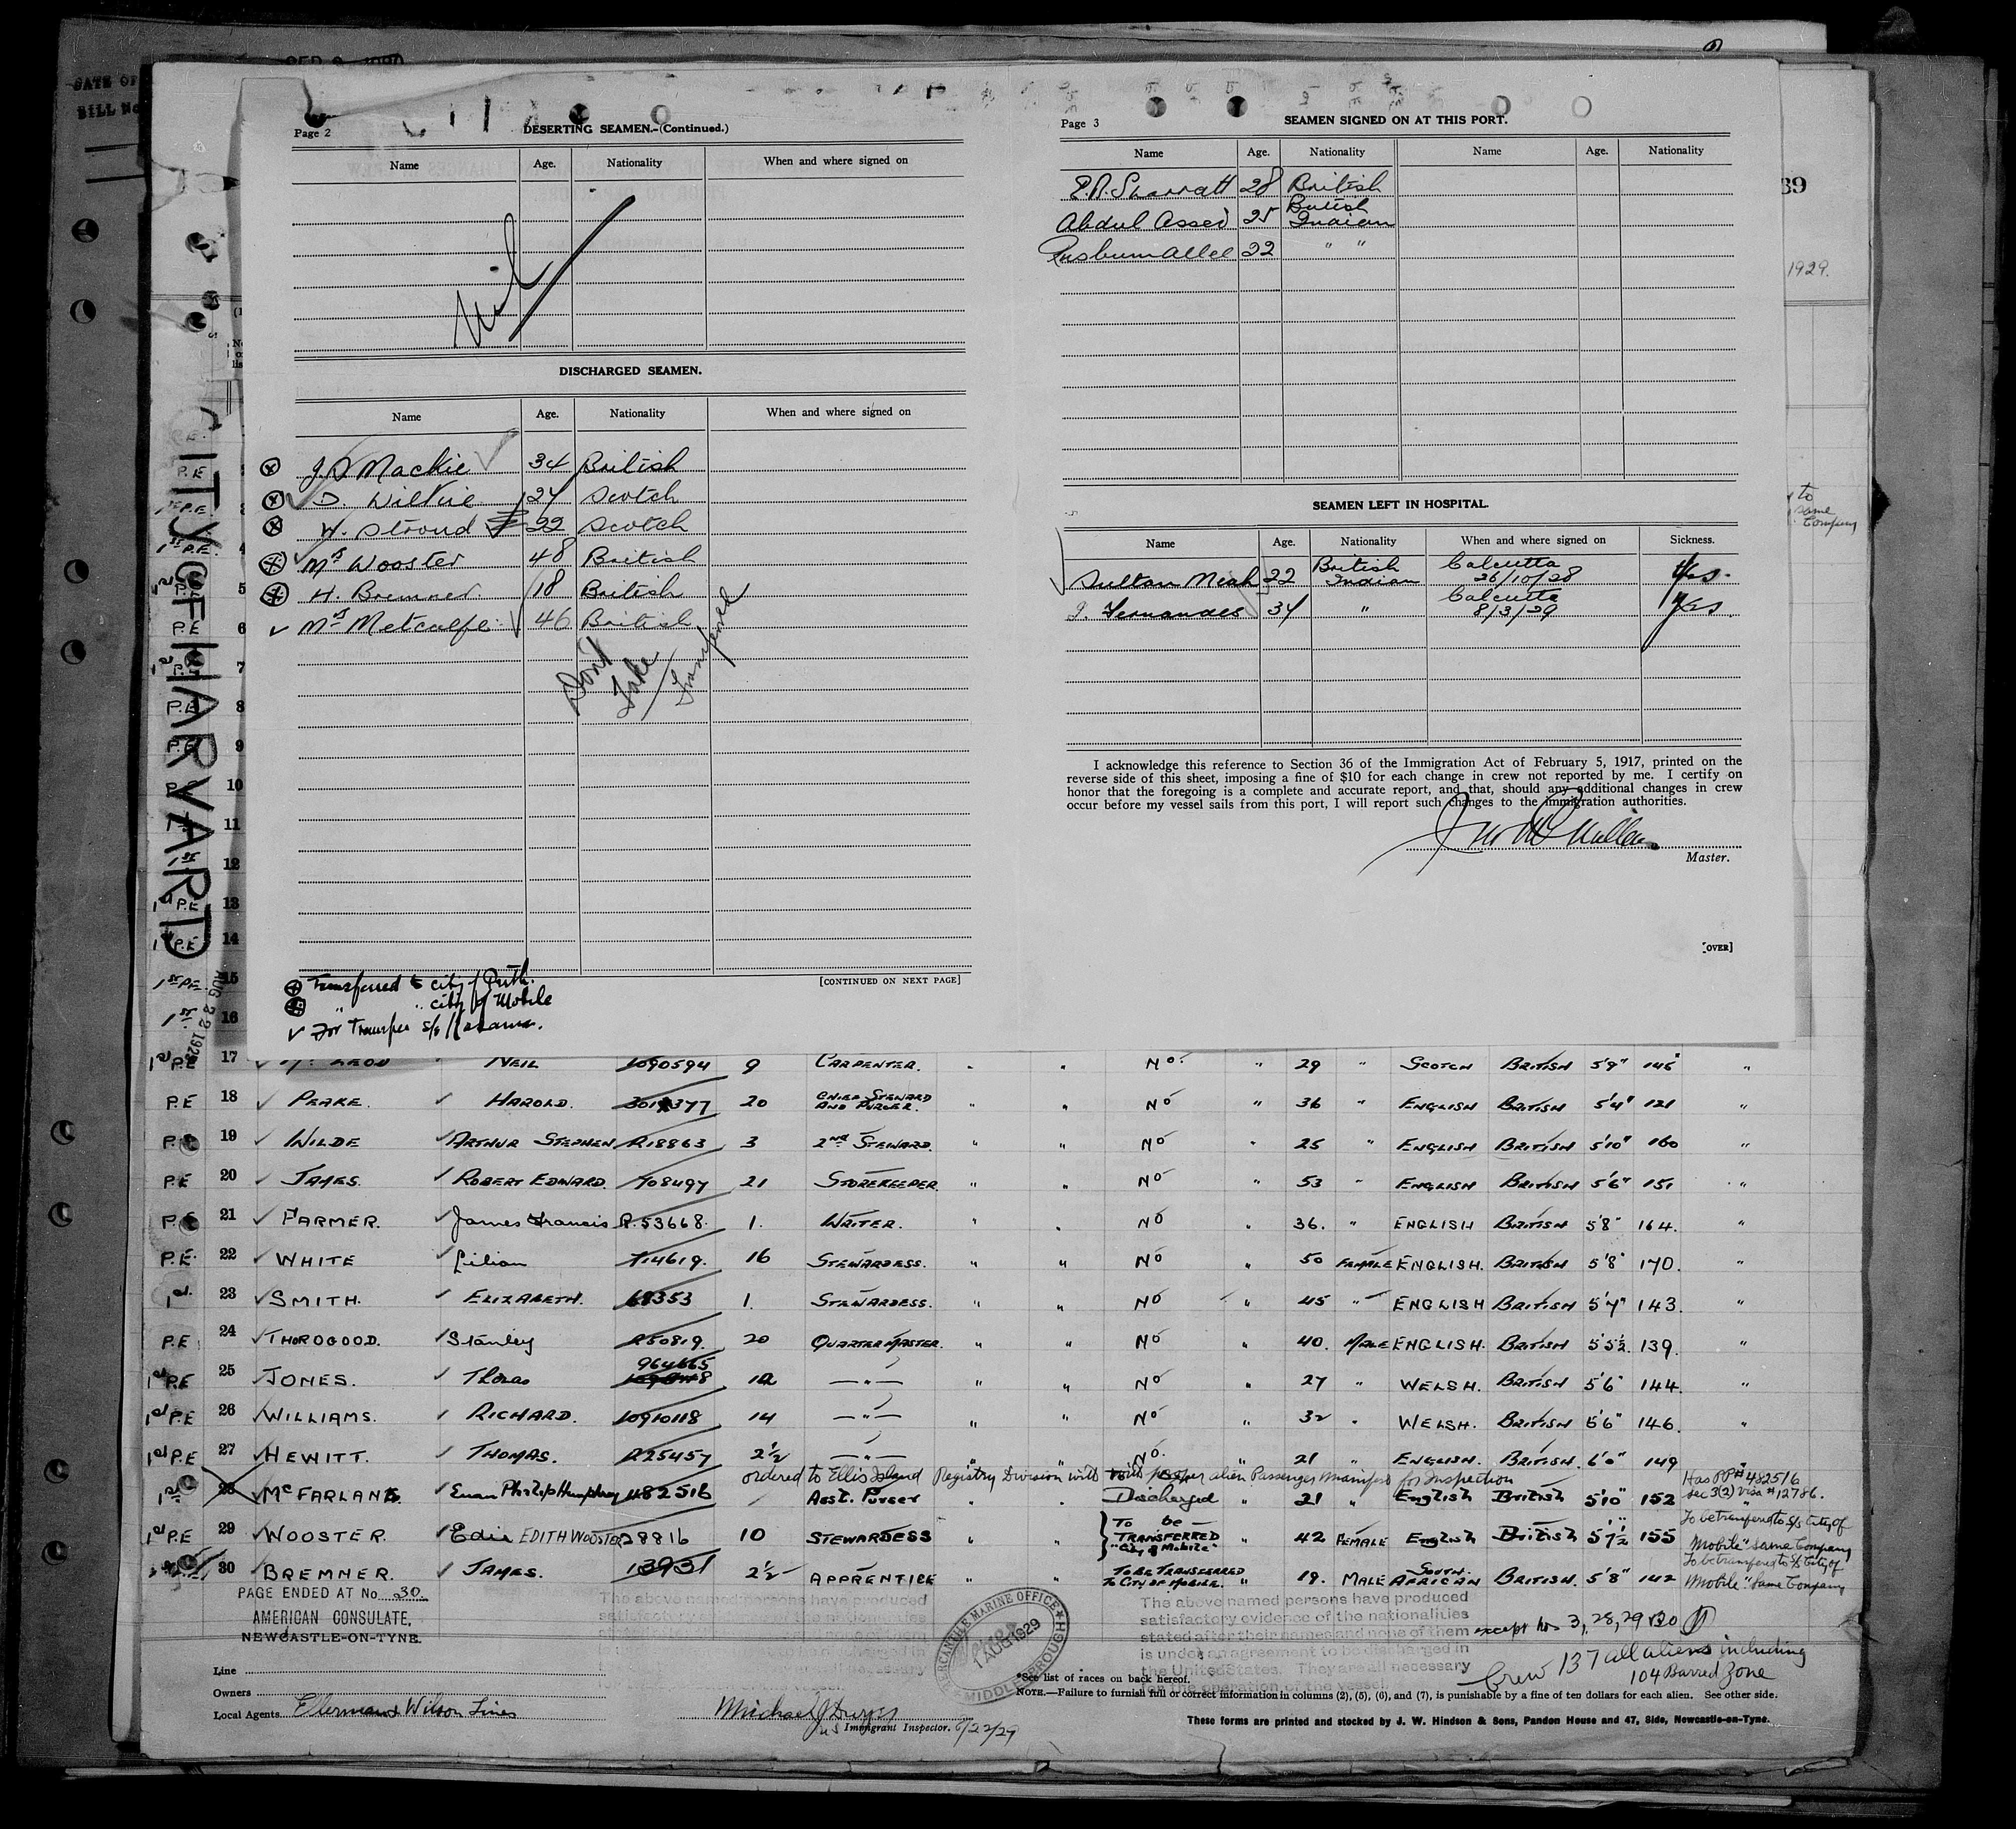 SEP 1929
DATE OF
BILL No
39
1929.
to
same
Company
CITY OF HARVARD
AUG 22 1929
Page 2
DESERTING SEAMEN.-(Continued.)
Name Age. Nationality When and where signed on
Nil
DISCHARGED SEAMEN.
Name Age. Nationality When and where signed on
J.D. Mackie 34 British
D. Wilkie 24 Scotch
H. Stroud 22 Scotch
Mrs Wooster 48 British
H. Bremner. 18 British
Mrs Metcalfe 46 British
Don't
Take
Transferred
Transferred to City of Perth.
" " City of Mobile
✓ For Transfer s/s
[CONTINUED ON NEXT PAGE]
Page 3
SEAMEN SIGNED ON AT THIS PORT.
Name Age. Nationality Name Age. Nationality
E.A. Sharratt 28 British
Abdul Assed 25 British Indian
Allee 22 " "
SEAMEN LEFT IN HOSPITAL.
Name Age. Nationality When and where signed on Sickness.
Sultan Meah 22 British Indian Calcutta 26/10/28 Yes.
Fernandes 34 " Calcutta 8/3/29 Yes
I acknowledge this reference to Section 36 of the Immigration Act of February 5, 1917, printed on the
reverse side of this sheet, imposing a fine of $10 for each change in crew not reported by me. I certify on
honor that the foregoing is a complete and accurate report, and that, should any additional changes in crew
occur before my vessel sails from this port, I will report such changes to the immigration authorities.
Master.
[OVER]
1st P.E 17 ✓ McLEOD NEIL 1090594 9 CARPENTER. " " No. " 29 " SCOTCH BRITISH 5'9" 145 "
P.E 18 ✓ PEAKE. ✓ HAROLD. 20 CHIEF STEWARD AND PURSER. " " No " 36 " ENGLISH BRITISH 5'4" 121 "
P.E 19 ✓ WILDE ✓ ARTHUR STEPHEN R18863 3 2ND STEWARD. " " No " 25 " ENGLISH BRITISH 5'10" 160 "
P.E 20 ✓ JAMES. ✓ ROBERT EDWARD. 708497 21 STOREKEEPER. " " No " 53 " ENGLISH BRITISH 5'6" 151 "
P.E 21 ✓ FARMER. ✓ James Francis R.53668. 1. WRITER. " " No " 36. " ENGLISH BRITISH 5'8" 164. "
P.E. 22 ✓ WHITE ✓ Lilian 714619. 16 STEWARDESS. " " No " 50 FEMALE ENGLISH. BRITISH 5'8" 170. "
1st. 23 ✓ SMITH. ✓ ELIZABETH. 68353 1. STEWARDESS. " " No " 45 " ENGLISH BRITISH 5'4" 143. "
P.E 24 ✓ THOROGOOD. ✓ Stanley R50819. 20 QUARTERMASTER. " " No " 40. MALE ENGLISH. BRITISH 5'5½. 139. "
1st P.E 25 ✓ JONES. ✓ Thomas 964665 12 —"— " " No " 27 " WELSH. BRITISH 5'6" 144. "
1st P.E 26 ✓ WILLIAMS. ✓ RICHARD. 10910118 14 —"— " " No " 32 " WELSH. BRITISH 5'6" 146. "
1st P.E 27 ✓ HEWITT. ✓ THOMAS. R25457 2½ —"— " " No. " 21 " ENGLISH. BRITISH. 6'0" 149 "
ordered to Ellis Island Registry Division with proper alien Passenger Manifest for Inspection
1st 28 McFARLANE. ✓ Euan Philip Humphrey 482516 Asst. Purser " " Discharged " 21 " English British 5'10" 152 Has PP# 482516 Sec 3(2) Visa #12786.
1st P.E 29 ✓ WOOSTER. ✓ Edie EDITH WOOSTER 28816 10 STEWARDESS " " To be TRANSFERRED "City of Mobile" " 42 FEMALE English British 5'7½" 155 To be transferred to s/s City of Mobile" Same Company
30 BREMNER. ✓ JAMES. 13931 2½ APPRENTICE " " TO BE TRANSFERRED TO CITY OF MOBILE. " 19. MALE SOUTH AFRICAN BRITISH. 5'8" 142 To be transferred to s/s City of Mobile". Same Company
PAGE ENDED AT No. 30
AMERICAN CONSULATE,
NEWCASTLE-ON-TYNE.
MERCANTILE MARINE OFFICE
1 AUG 1929
MIDDLESBROUGH
The above named persons have produced
satisfactory evidence of the nationalities
stated after their names and none of them
is under an agreement to be discharged in
the United States. They are all necessary
for the operation of the vessel.
except Nos 3, 28, 29 & 30
Crew 137 all aliens including
104 Barred Zone
Line
Owners
Local Agents Ellerman & Wilson Lines
US Immigrant Inspector. 8/22/29
*See list of races on back hereof.
NOTE.—Failure to furnish full or correct information in columns (2), (5), (6), and (7), is punishable by a fine of ten dollars for each alien. See other side.
These forms are printed and stocked by J. W. Hindson & Sons, Pandon House and 47, Side, Newcastle-on-Tyne.